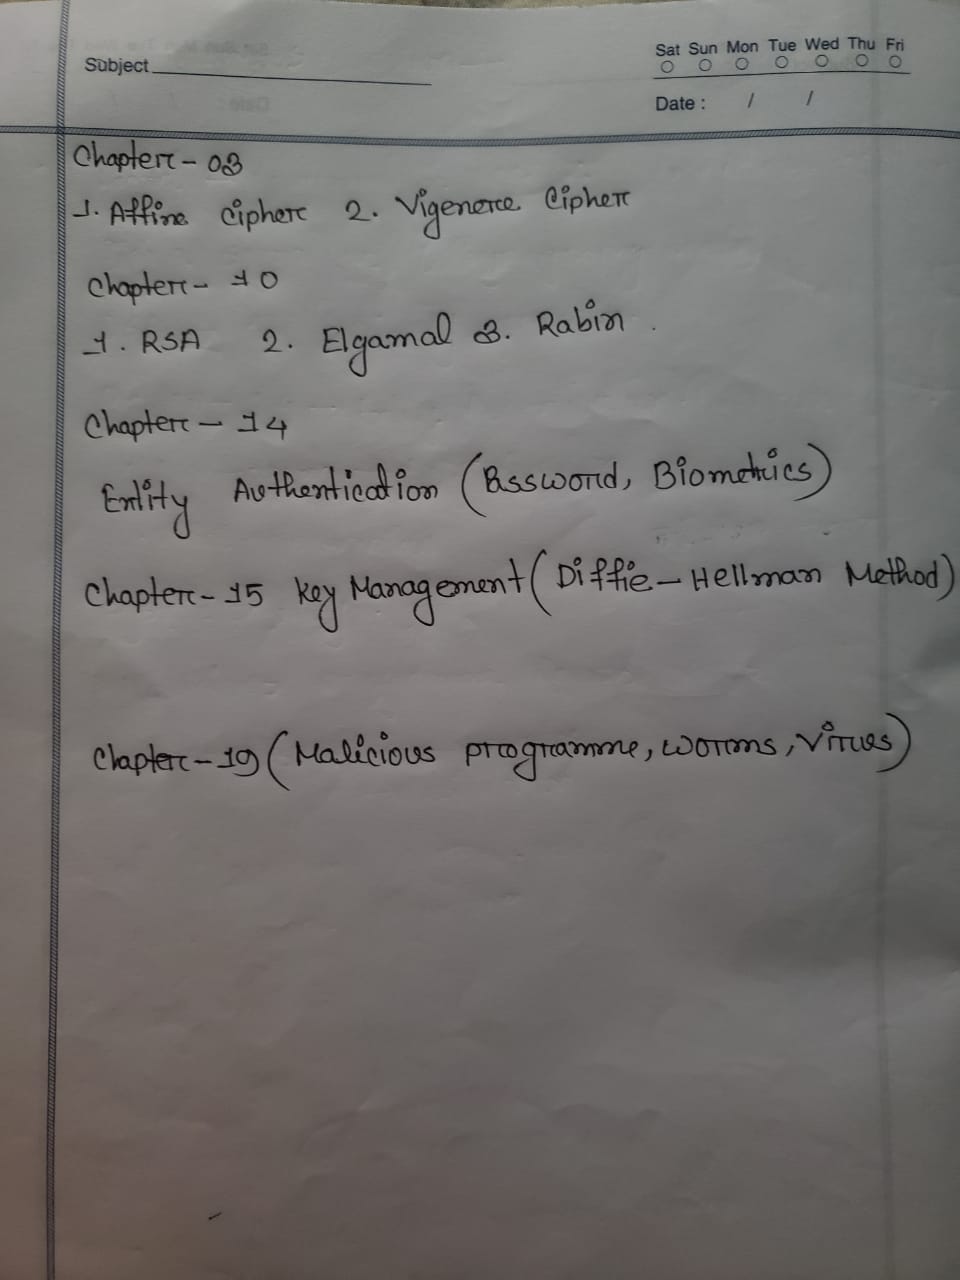 Subject
Sat Sun Mon Tue Wed Thu Fri
Date : / /
Chapter - 03
1. Affine cipher 2. Vigenere Cipher
Chapter - 10
1. RSA 2. Elgamal 3. Rabin.
Chapter - 14
Entity Authentication (Password, Biometrics)
Chapter - 15 Key Management (Diffie - Hellman Method)
Chapter - 19 (Malicious programme, worms, Virus)